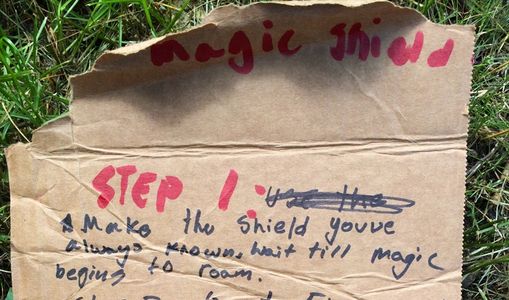 magic shield
STEP 1: use the
Make the shield youve
always known, wait till magic
begins to roam.